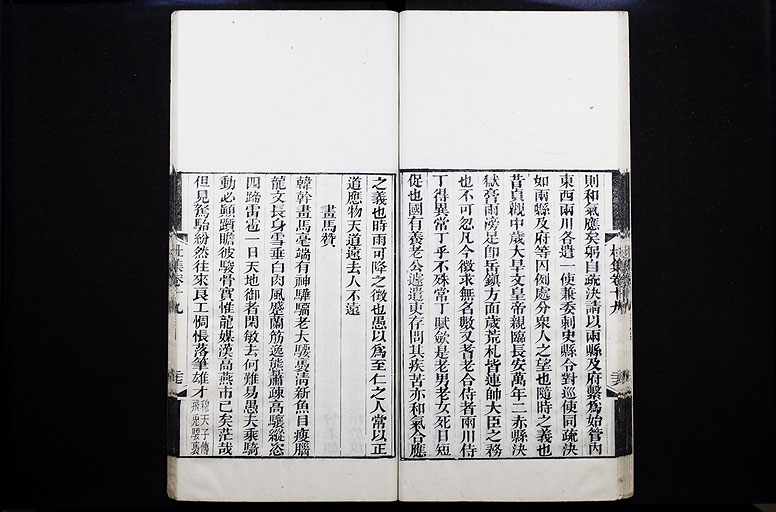 則和氣應矣躬自疏決請以兩縣及府繫為始管內
東西兩川各遣一使兼委刺史縣令對巡使同疏決
如兩縣及府等囚例處分衆人之望也隨時之義也
昔貞觀中歲大旱文皇帝親臨長安萬年二赤縣決
獄膏雨滂足卽岳鎮方面歲荒札皆連帥大臣之務
也不可忽凡今徵求無名數又耆老合侍者兩川侍
丁得異常丁乎不殊常丁賦斂是老男老女死日短
促也國有養老公遽遣吏存問其疾苦亦和氣合應
之義也時雨可降之徵也愚以為至仁之人常以正
道應物天道遠去人不遠
畫馬贊
韓幹畫馬毫端有神驊騮老大騕褭清新魚目瘦腦
龍文長身雪垂白肉風蹙蘭筋逸態蕭疎高驤縱恣
四蹄雷雹一日天地御者閑敏去何難易愚夫乘騎
動必顛躓瞻彼駿骨實惟龍媒漢高燕市已矣茫哉
但見駑駘紛然往來良工惆悵落筆雄才
穆天子傳
飛兎騕褭
杜集卷十九